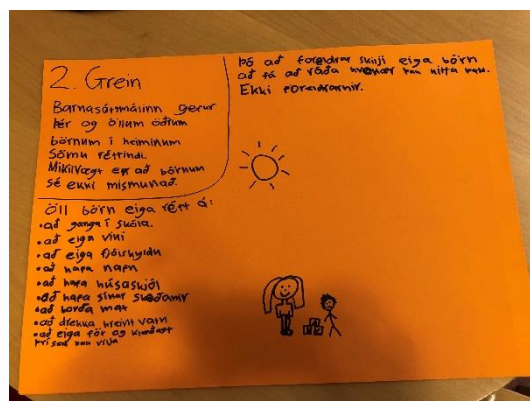 2. Grein
Barnasáttmálinn gerur
þér og öllum öðrum
börnum í heiminum
Sömu réttindi.
Mikilvægt er að börnum
sé ekki mismunað.
Öll börn eiga rétt á:
•að ganga í skóla.
•að eiga vini
•að eiga fjölskyldu
•að hafa nafn
•að hafa húsaskjól
•að hafa sínar skoðanir
•að borða mat
•að drekka hreint vatn
•að eiga föt og klæðast
því sem þau vilja
Þó að foreldrar skilji eiga börn
að fá að ráða hvenær þau hitta þau.
Ekki foreldrarnir.